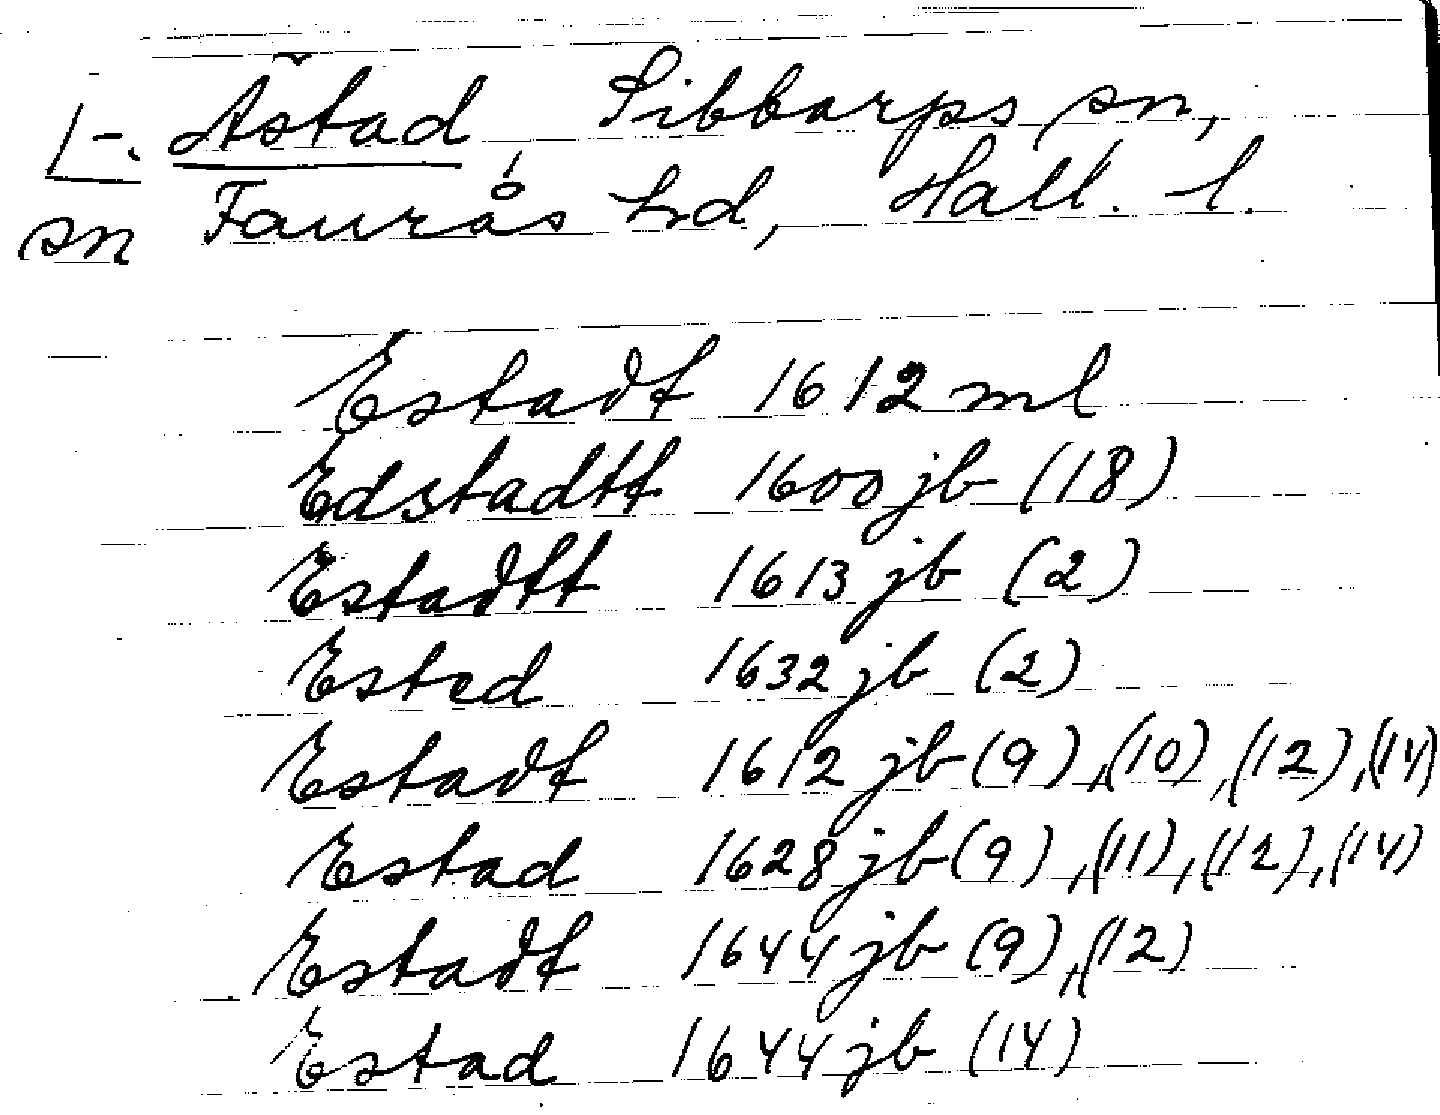 L-. Ästad, Sibbarps sn,
sn Faurås hd, Hall. l.
Estadt 1612 ml
Edstadtt 1600 jb (18)
Estadtt 1613 jb (2)
Ested 1632 jb (2)
Estadt 1612 jb (9), (10), (12), (14)
Estad 1628 jb (9), (11), (12), (14)
Estadt 1644 jb (9), (12)
Estad 1644 jb (14)